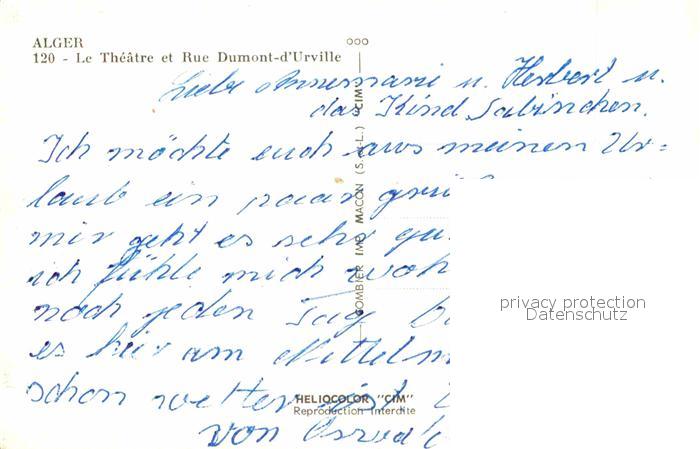 ALGER
120 - Le Théâtre et Rue Dumont-d'Urville
Liebe Annemarie u. Herbert u.
das Kind Sabinchen.
Ich möchte euch aus meinen Ur=
laub ein paar grü
mir geht es sehr gu
ich fühle mich woh
noch jeden Tag
es hier am Mittelm
schon wetter ist
von
COMBIER IMP. MACON (S.-&-L.) "CIM"
HELIOCOLOR "CIM"
Reproduction Interdite
privacy protection
Datenschutz